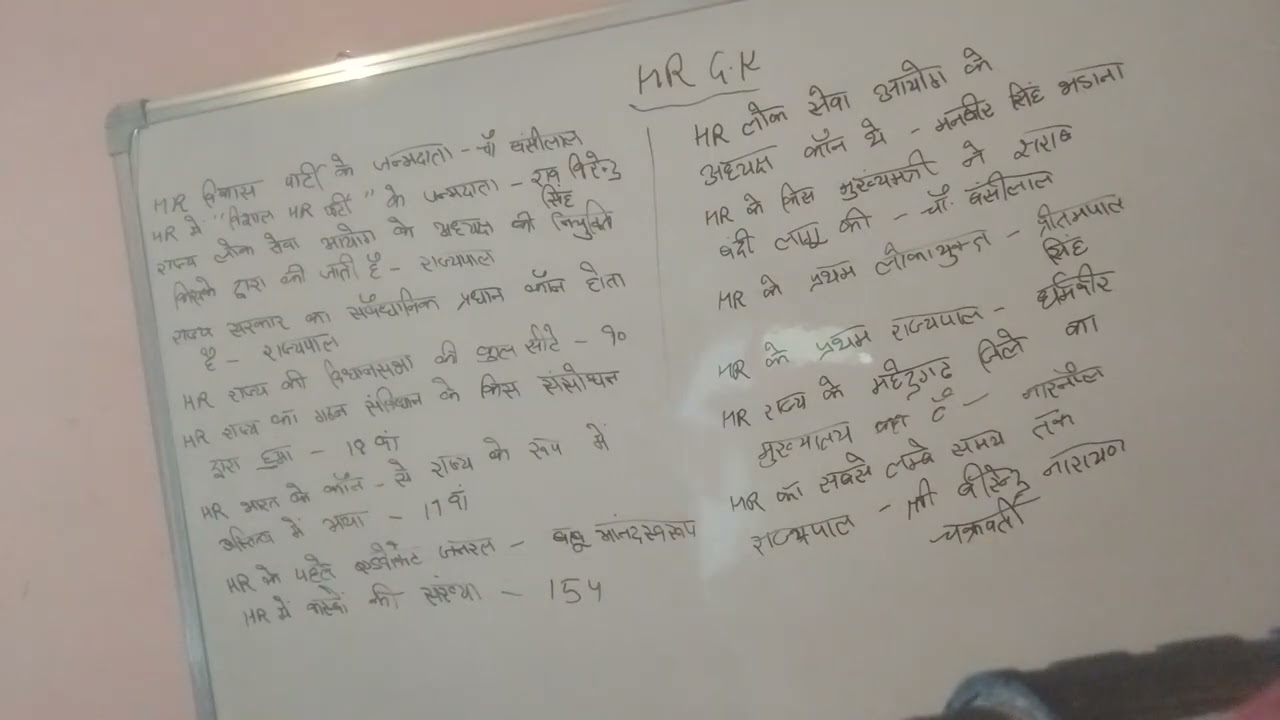 HR G.K
HR विकास पार्टी के जन्मदाता - चौ बंसीलाल
HR में "विशाल HR पार्टी" के जन्मदाता - राव विरेन्द्र
सिंह
राज्य लोक सेवा आयोग के अध्यक्ष की नियुक्ति
किसके द्वारा की जाती है - राज्यपाल
राज्य सरकार का सवैंधानिक प्रधान कॉन होता
है - राज्यपाल
HR राज्य की विधानसभा की कुल सीटे - 90
HR राज्य का गठन संविधान के किस संसोधन
द्वारा हुआ - 18 वां
HR भारत के कॉन - से राज्य के रूप में
अस्तित्व में आया - 17 वां
HR के पहले एडवोकेट जनरल - बाबू आंनदस्वरूप
HR में कस्बों की संख्या - 154
HR लोक सेवा आयोग के
अध्यक्ष कॉन थे - मनबीर सिंह भडाना
HR के किस मुख्यमंत्री ने सराब
बंदी लागू की - चौं. बंसीलाल
HR के प्रथम लोकायुक्त - प्रीतमपाल
सिंह
HR के प्रथम राज्यपाल - धर्मवीर
HR राज्य के महेंद्रगढ जिले का
मुख्यालय कहा है - नारनौल
HR का सबसे लम्बे समय तक
राज्यपाल - श्री बीरेन्द्र नारायण
चक्रवर्ती